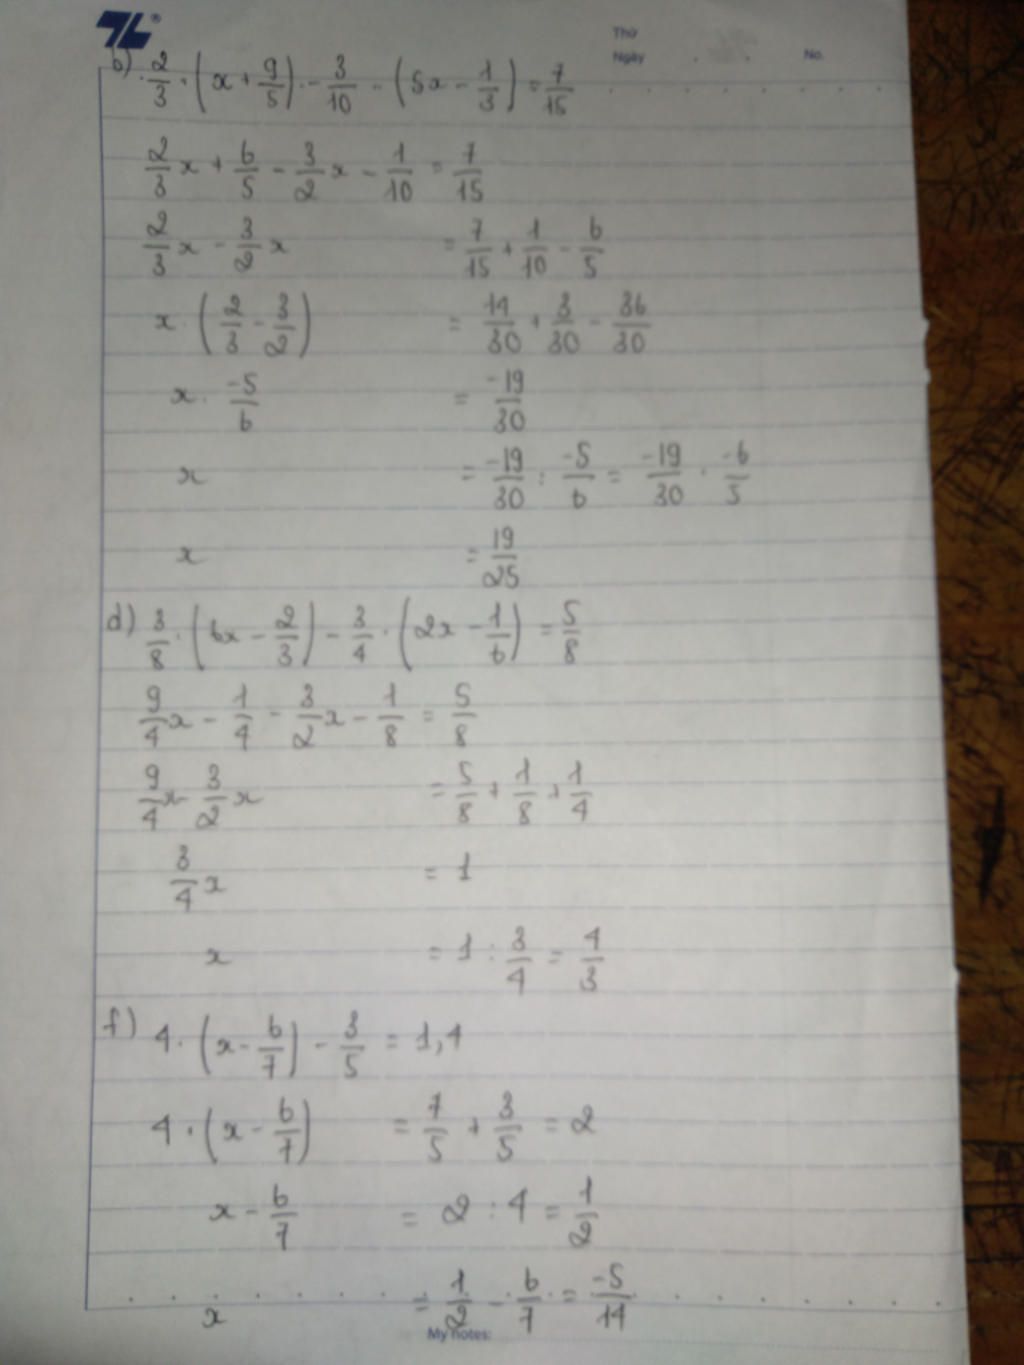 Thứ
Ngày No.
b) 2/3 · (x + 9/5) - 3/10 - (5x - 1/3) = 7/15
2/3 x + 6/5 - 3/2 x - 1/10 = 7/15
2/3 x - 3/2 x = 7/15 + 1/10 - 6/5
x · (2/3 - 3/2) = 14/30 + 3/30 - 36/30
x · -5/6 = -19/30
x = -19/30 : -5/6 = -19/30 · -6/5
x = 19/25
d) 3/8 · (6x - 2/3) - 3/4 · (2x - 1/6) = 5/8
9/4 x - 1/4 - 3/2 x - 1/8 = 5/8
9/4 x - 3/2 x = 5/8 + 1/8 + 1/4
3/4 x = 1
x = 1 : 3/4 = 4/3
f) 4 · (x - 6/7) - 3/5 = 1,4
4 · (x - 6/7) = 7/5 + 3/5 = 2
x - 6/7 = 2 : 4 = 1/2
x = 1/2 - 6/7 = -5/14
My notes: